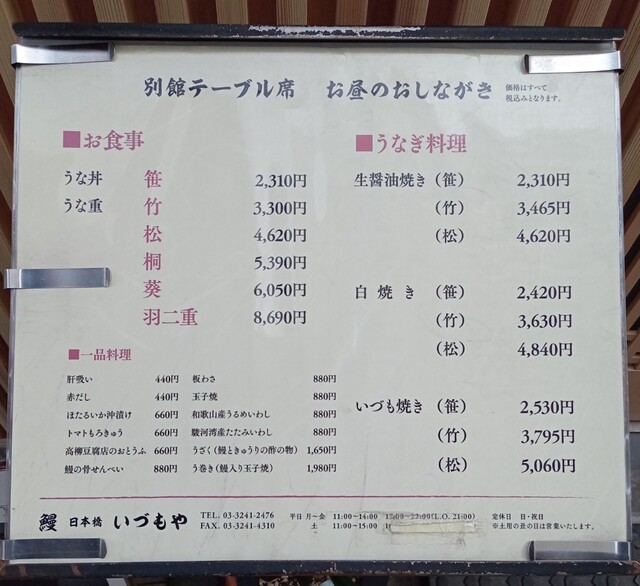 別館テーブル席 お昼のおしながき 価格はすべて
税込みとなります。
■お食事
うな丼 笹 2,310円
うな重 竹 3,300円
松 4,620円
桐 5,390円
葵 6,050円
羽二重 8,690円
■一品料理
肝吸い 440円 板わさ 880円
赤だし 440円 玉子焼 880円
ほたるいか沖漬け 660円 和歌山産うるめいわし 880円
トマトもろきゅう 660円 駿河湾産たたみいわし 880円
高柳豆腐店のおとうふ 660円 うざく(鰻ときゅうりの酢の物) 1,650円
鰻の骨せんべい 880円 う巻き(鰻入り玉子焼) 1,980円
■うなぎ料理
生醤油焼き(笹) 2,310円
(竹) 3,465円
(松) 4,620円
白焼き(笹) 2,420円
(竹) 3,630円
(松) 4,840円
いづも焼き(笹) 2,530円
(竹) 3,795円
(松) 5,060円
鰻 日本橋 いづもや
TEL. 03-3241-2476
FAX. 03-3241-4310
平日 月〜金 11:00〜14:00 (L.O. 21:00)
土 11:00〜15:00
定休日 日・祝日
※土用の丑の日は営業いたします。